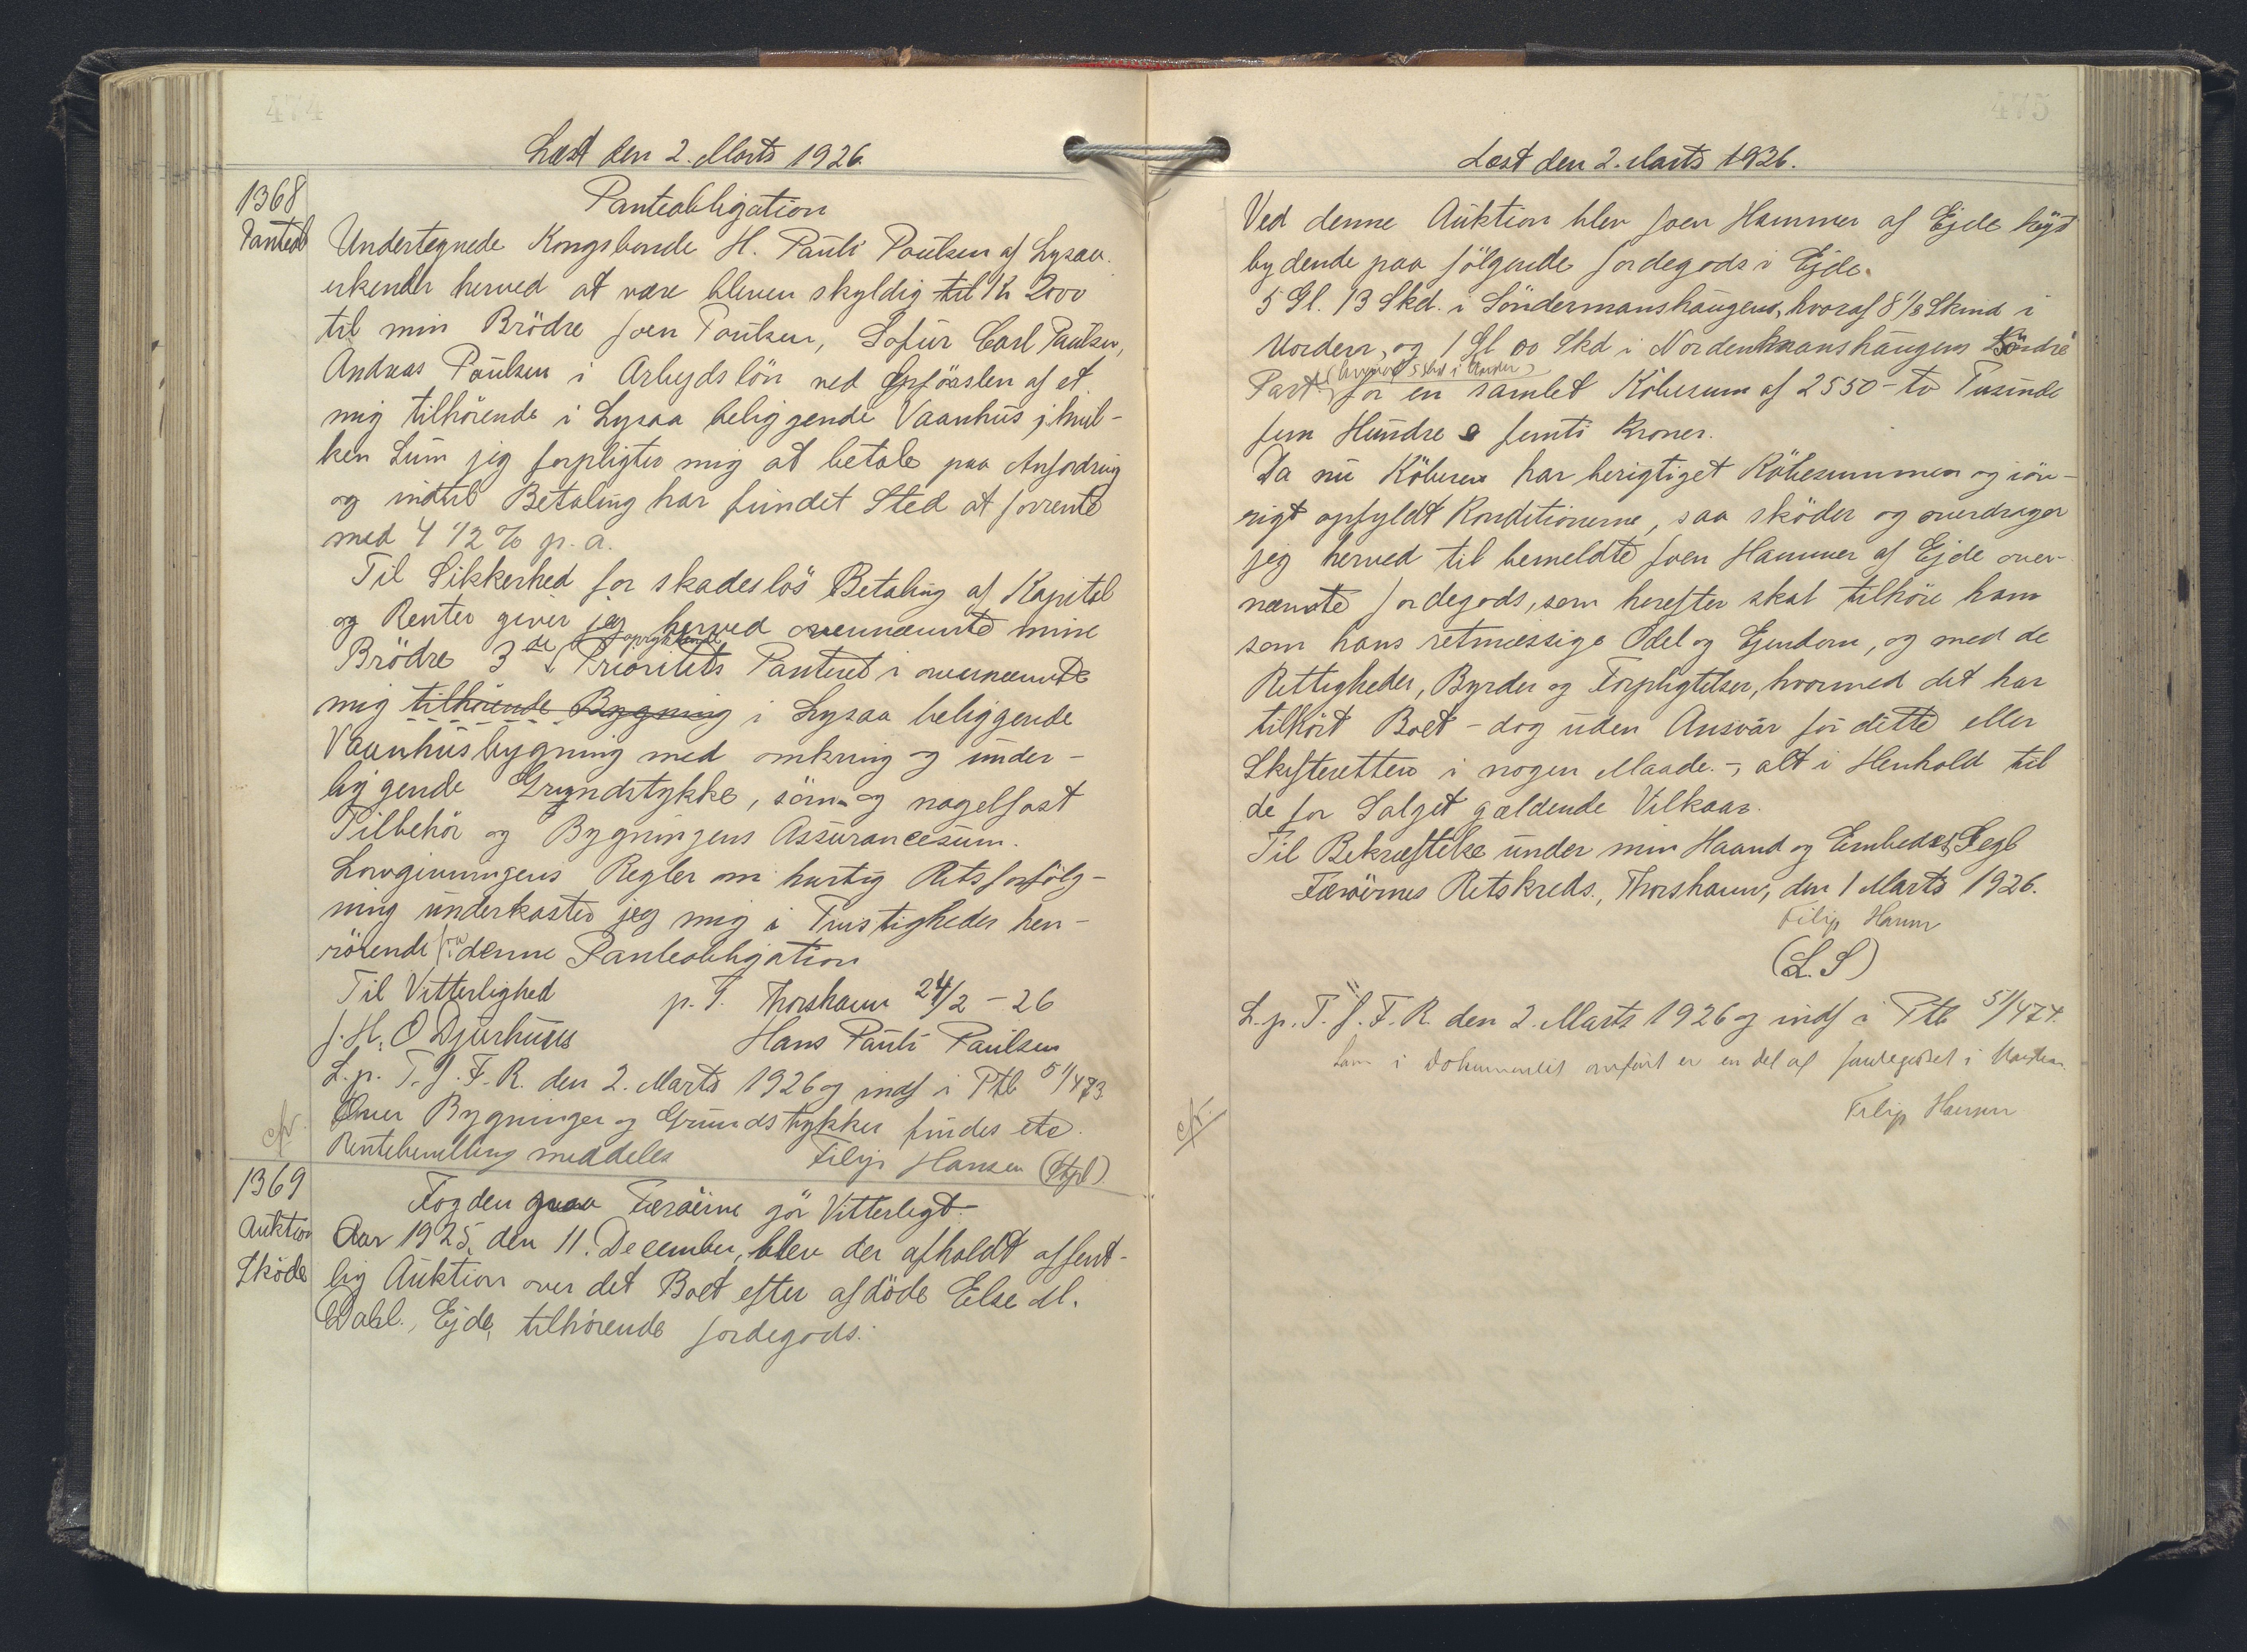 474
Læst den 2. Marts 1926.
1368
Panteobl
Panteobligation
Undertegnede Kongsbonde H. Pauli Poulsen af Lysaa
erkender herved at være bleven skyldig til Kr 2000
til min Brödre Joen Poulsen, Sofus Carl Paulsen,
Andreas Poulsen i Arbejdslön ved Opförslen af et
mig tilhörende i Lysaa beliggende Vaanhus j. hvil-
ken Sum jeg forpligter mig at betale paa Anfordring
og indtil Betaling har fundet Sted at forrente
med 4 1/2 % p. a.
Til Sikkerhed for skadeslös Betaling af Kapital
og Renter giver jeg herved ovennævnte mine
oprykkende
Brödre 3de Prioritets Panteret i ovennævnte
mig tilhörende Bygning i Lysaa beliggende
Vaanhusbygning med omkring og under-
liggende Grundstykke, söm- og nagelfast
Tilbehör og Bygningens Assurancesum.
Lovgivningens Regler om hurtig Retsforfölg-
ning underkaster jeg mig i Tvistigheder hen-
rörende fra denne Panteobligation
Til Vitterlighed p. T. Thorshavn 24/2 - 26
J. H. O Djurhuus Hans Pauli Paulsen
L. p. T. f. F. R. den 2. Marts 1926 og indf i Ptb 51/473
Over Bygninger og Grundstykker findes etc.
Rentebevilling meddeles Filip Hansen (Stpl)
1369
Auktion
Sköde
Fogden paa Færöerne gör Vitterligt:
Aar 1925, den 11. December, blev der afholdt offent-
lig Auktion over det Boet efter afdöde Else M.
Dahl, Ejde, tilhörende Jordegods.
475
Læst den 2. Marts 1926.
Ved denne Auktion blev Joen Hammer af Ejde höjst
bydende paa fölgende Jordegods i Ejde.
5 Gl. 13 Skd. i Söndermanshaugens, hvoraf 8 1/3 Skind i
Uordern, og 1 Gl 00 Skd i Nordenmanshaugens Söndre
Part for en samlet Köbesum af 2550 - to Tusinde
fem Hundre o femti Kroner.
Da nu Köberen har berigtiget Köbesummen og iöv-
rigt opfyldt Konditionerne, saa sköder og overdrager
jeg herved til bemeldte Joen Hammer af Ejde oven-
nævnte Jordegods, som herefter skal tilhöre ham
som hans retmæssige Odel og Ejendom, og med de
Rettigheder, Byrder og Forpligtelser, hvormed det har
tilhört Boet - dog uden Ansvar for dette eller
Skifteretten i nogen Maade. -, alt i Henhold til
de for Salget gældende Vilkaar.
Til Bekræftelse under min Haand og Embeds Segl
Færöernes Retskreds., Thorshavn, den 1 Marts 1926.
Filip Hansen
(L. S)
L. p. T. f. F. R. den 2. Marts 1926 og indf i Ptb 51/474.
Som i Dokumentet anfört er en del af Jordegodset i
Filip Hansen